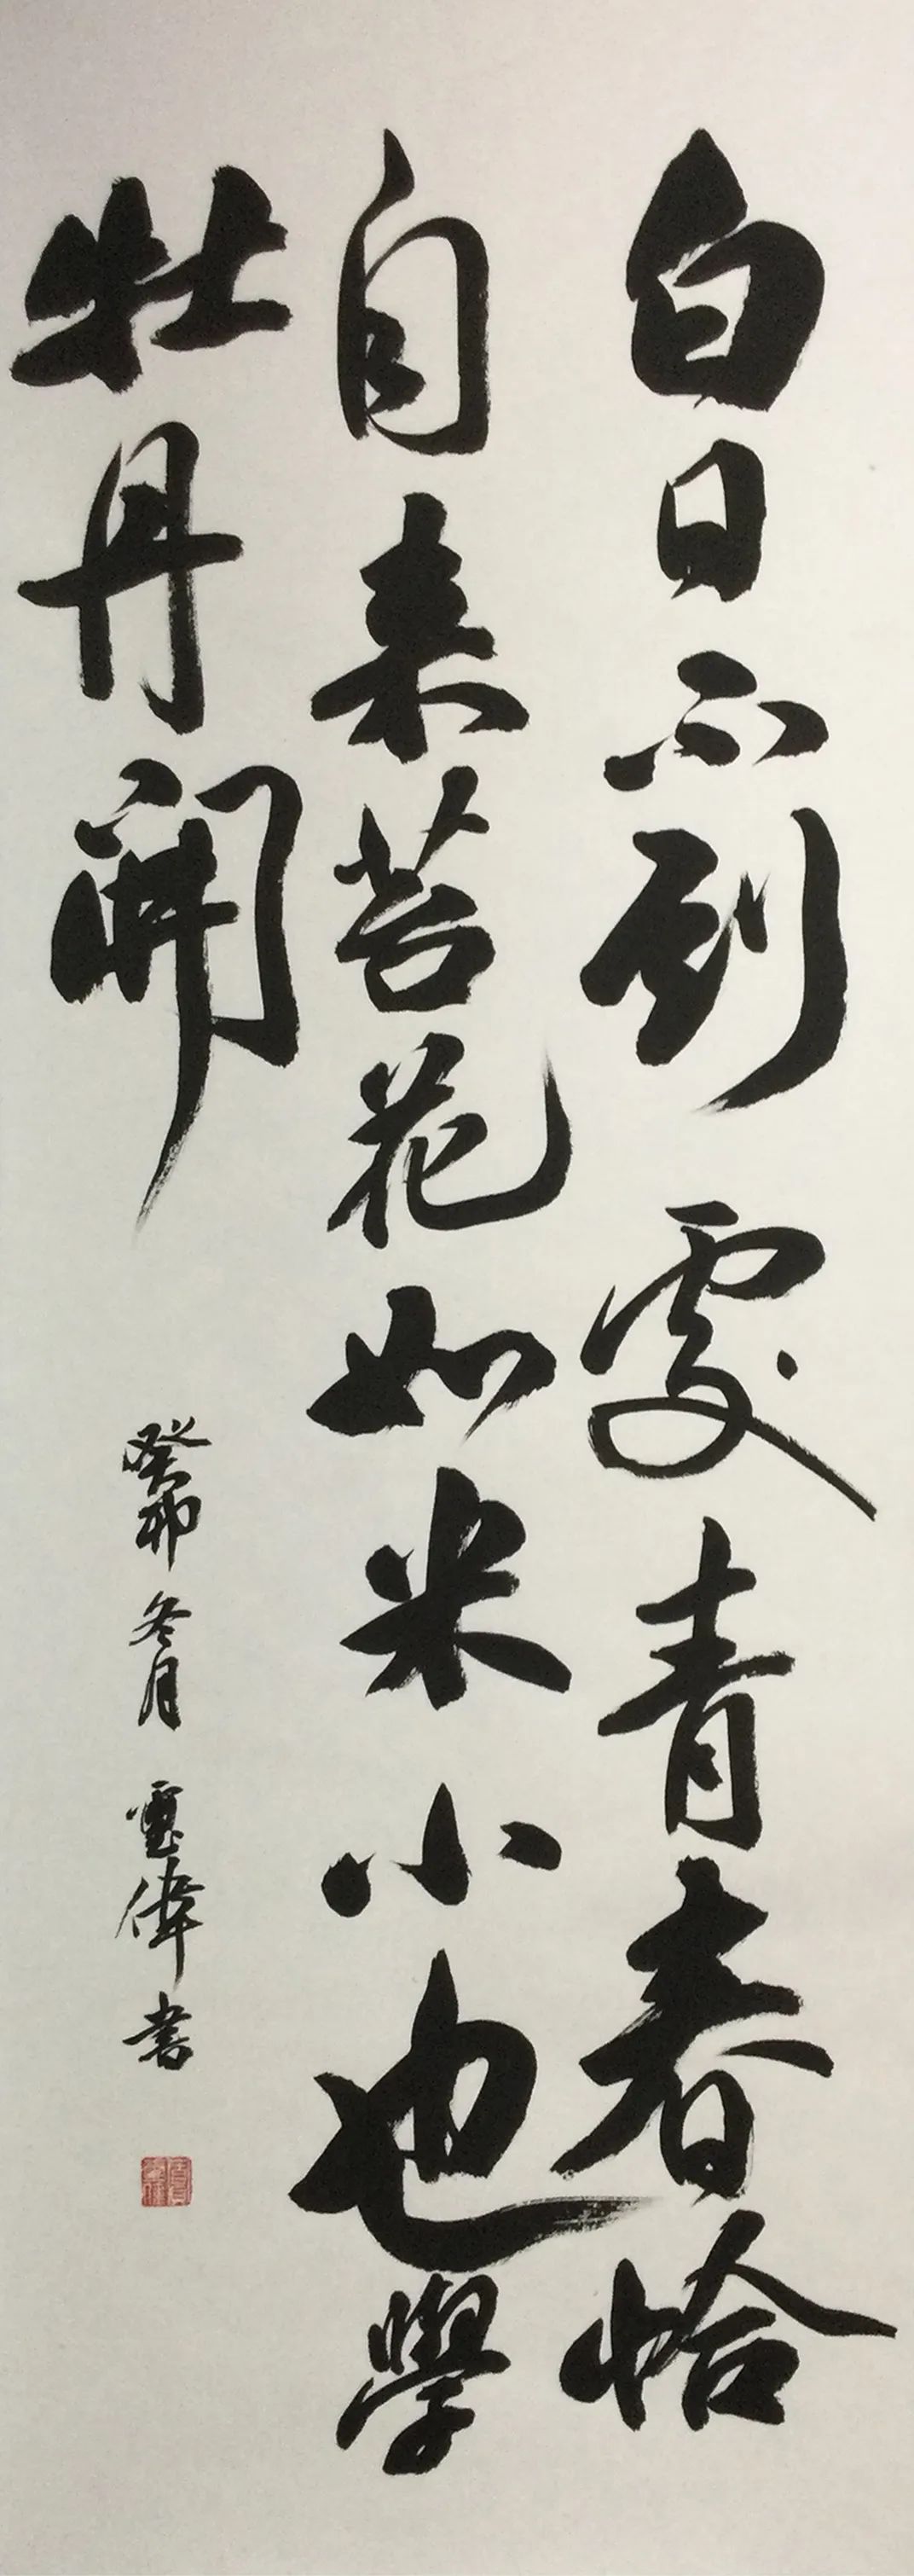 白日不到處青春恰
自来苔花如米小也學
牡丹開
癸卯冬月 雲偉書